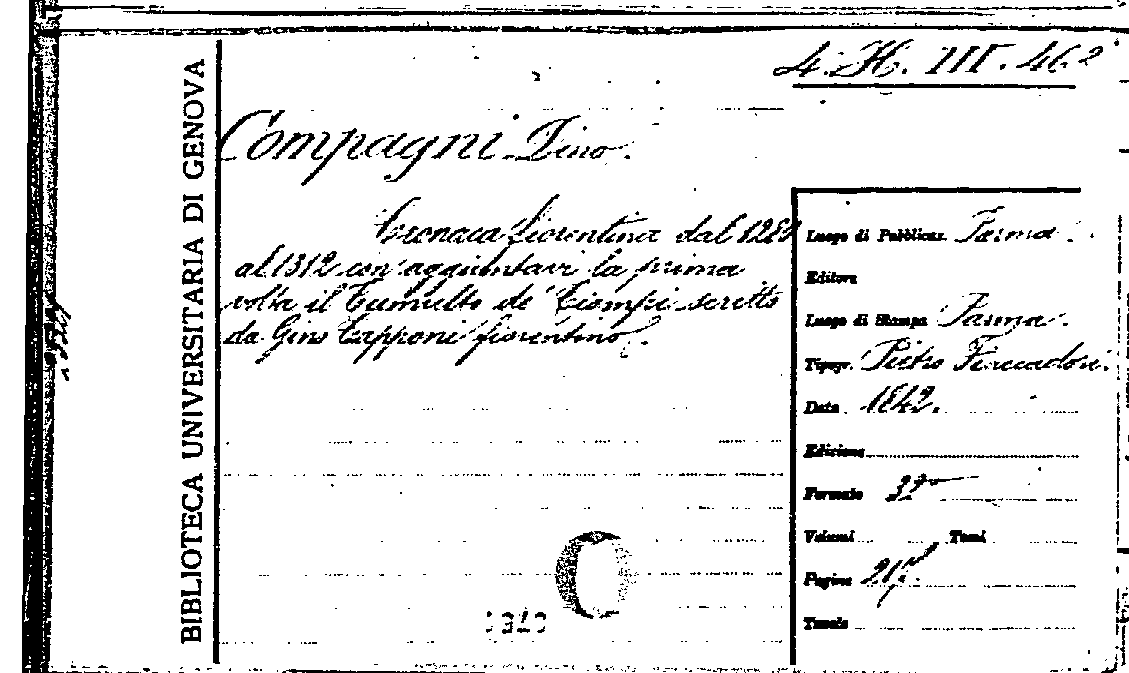 4. H. III. 462
BIBLIOTECA UNIVERSITARIA DI GENOVA
Compagni Dino.
Cronaca fiorentina dal 1280
al 1312 con aggiuntavi la prima
volta il Tumulto de' Ciompi scritto
da Gino Capponi fiorentino.
Luogo di Pubblicaz. Parma.
Editore
Luogo di Stampa Parma.
Tipogr. Pietro Fiaccadori.
Data 1842.
Edizione
Formato 32°
Volumi Tomi
Pagine
Tavole